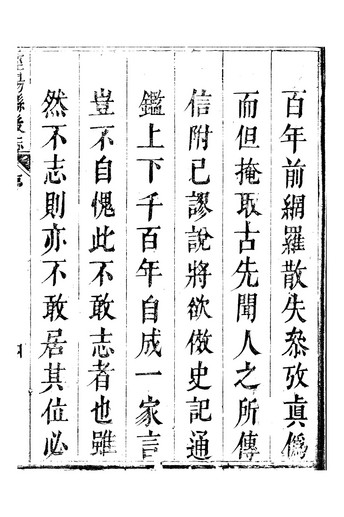 百年前網羅散失叅攷真僞
而但掩取古先聞人之所傳
信附已謬說將欲倣史記通
鑑上下千百年自成一家言
豈不自愧此不敢志者也雖
然不志則亦不敢居其位必